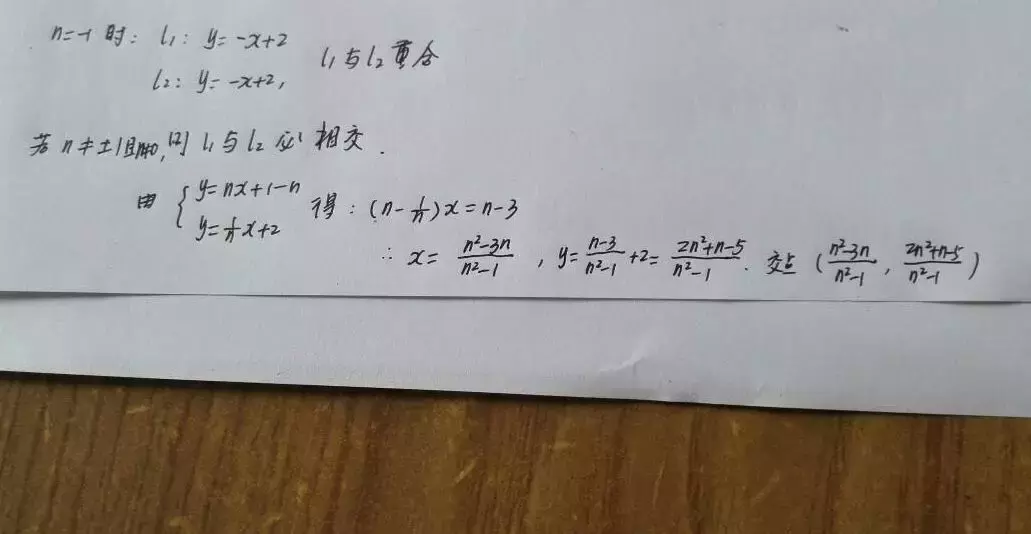 n=-1 时: l₁: y=-x+2
l₂: y=-x+2, l₁与l₂重合
若 n≠±1且n≠0,则 l₁与l₂ 必相交.
由 { y=nx+1-n
y=\frac{1}{n}x+2 得: (n-\frac{1}{n})x=n-3
∴ x=\frac{n²-3n}{n²-1}, y=\frac{n-3}{n²-1}+2=\frac{2n²+n-5}{n²-1}. 交点 (\frac{n²-3n}{n²-1}, \frac{2n²+n-5}{n²-1})